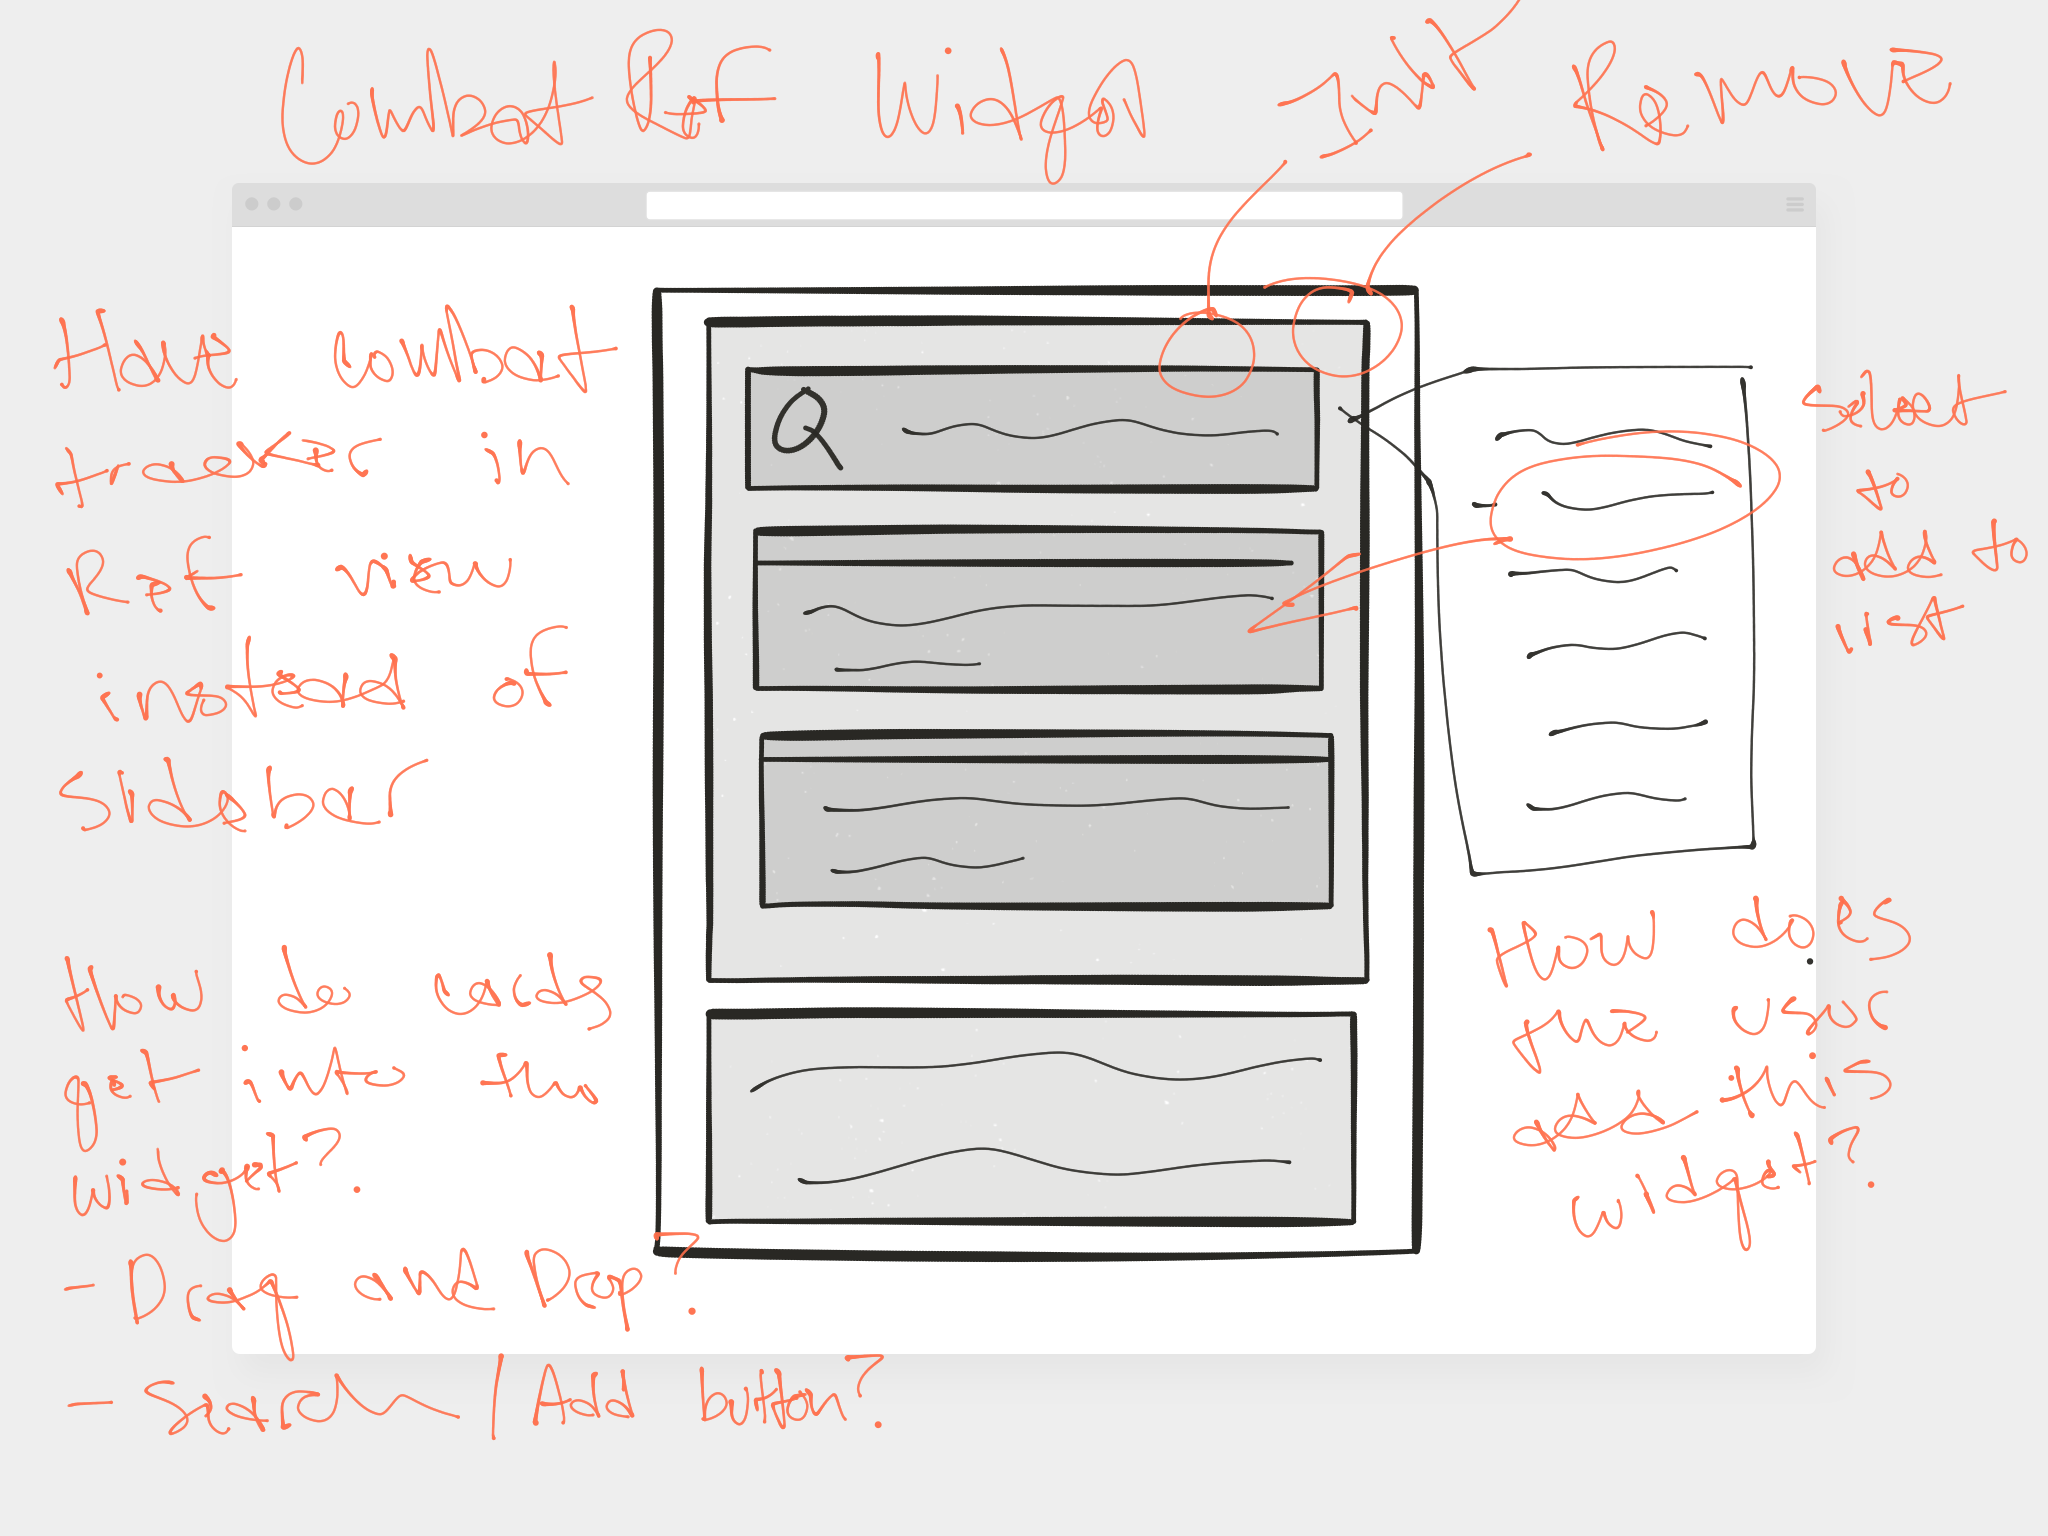 Combat Ref Widget
Init
Remove
Have combat
tracker in
Ref view
instead of
sidebar
Select
to
add to
list
How do cards
get into the
widget?
- Drag and Drop?
- Search / Add button?
How does
the user
add this
widget?